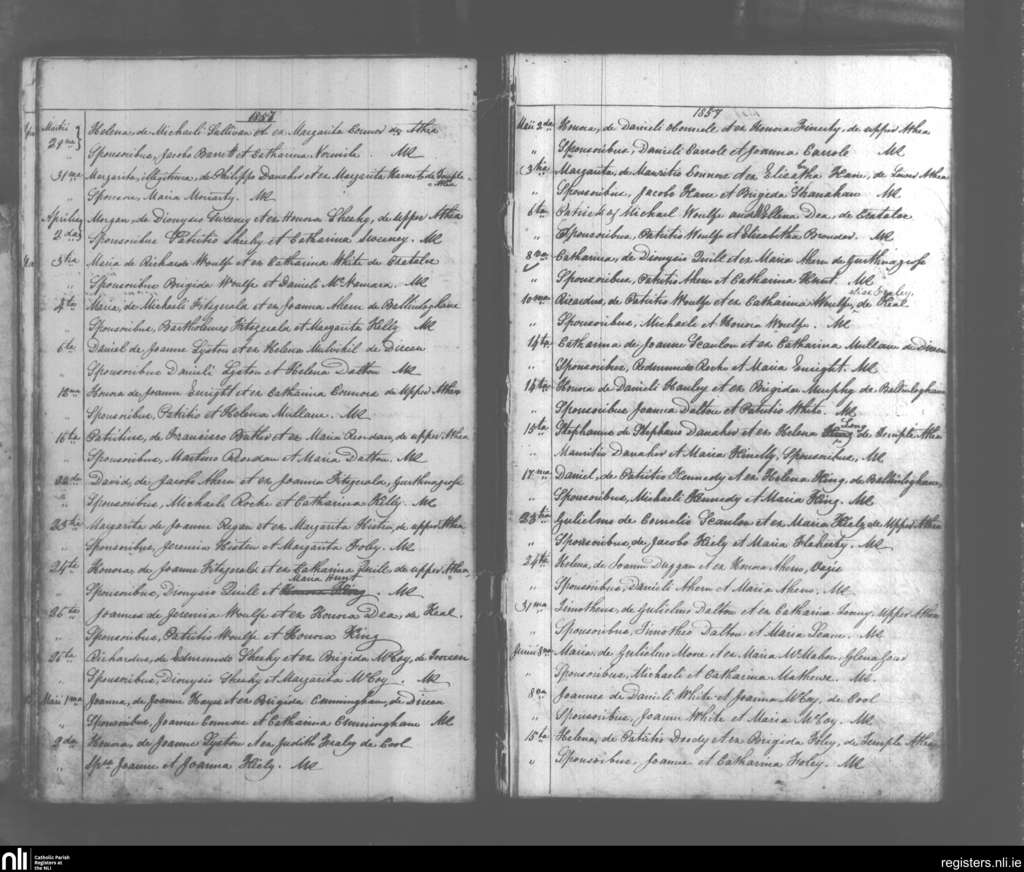 1857
Martii 29na Helena, de Michaeli Sullivan et ex Margarita Connor de Athea
" Sponsoribus, Jacobo Barrett et Catharina Normile. MR
31ma Margarita, illegitima, de Philippo Danaher et ex Margarita de Temple Athea
" Sponsore, Maria Moriarty. MR
Aprilis 2da Morgan, de Dionysio Sweeny et ex Honora Sheehy, de upper Athea
Sponsoribus Patritio Sheehy et Catharina Sweeney. MR
3tia Maria de Richardo Woulfe et ex Catharina White de Cratatore
" Sponsoribus Brigida Woulfe et Danieli McNamara. MR
4ta Maria, de Michaeli Fitzgerald et ex Joanna Ahern de
" Sponsoribus, Bartholomeo Fitzgerald et Margarita Kelly. MR
6ta Daniel de Joanne Lyston et ex Helena Mulvihil de Direen
" Sponsoribus Danieli Lyston et Helena Dalton MR
Honora, de Joanne Enright et ex Catharina Connors de Upper Athea
Sponsoribus, Patritio et Helena Mullane. MR
16ta de Francisco et ex Maria Riordan, de upper Athea
" Sponsoribus, Martino Riordan et Maria Dalton. MR
22da David, de Jacobo Ahern et ex Joanna Fitzgerald, Gurthnagross
" Sponsoribus, Michaeli Roche et Catharina Kelly. MR
23tia Margarita de Joanne Regan et ex Margarita Histin, de upper Athea
" Sponsoribus, Jeremia Histin et Margarita Foley. MR
24ta Honora, de Joanne Fitzgerald et ex Catharina Quill de upper Athea
Maria Hunt
" Sponsoribus, Dionysio Quill et MR
25ta Joannes de Jeremia Woulfe et ex Honora Dea, de Keal.
" Sponsoribus, Patritio Woulfe et Honora King
Richardus, de Edmundo Sheehy et ex Brigida McCoy, de
" Sponsoribus, Dionysio Sheehy et Margarita McCoy MR
Maii 1ma Joanna, de Joanne Hayes et ex Brigida Cunningham, de Direen
" Sponsoribus, Joanne Connor et Catharina Cunningham MR
2da Honora, de Joanne Lyston et ex Judith Fraly de Cool
" Joanne et Joanna Kiely. MR
1857
Maii 2da Honora, de Danieli Connell et ex Honora, de upper Athea
" Sponsoribus, Danieli Carrole et Joanna Carrole MR
3tia Margarita, de Mauritio Connor et ex Elizabetha Kane, de Lower Athea
" Sponsoribus, Jacobo Kane et Brigida Shanahan MR
6ta Patrick of Michael Woulfe and Ellena Dea, de Cratatore
" Sponsoribus, Patritio Woulfe et Elizabetha Brouder. MR
8va Catharina, de Dionysio Quill et ex Maria Ahern de Gurthnagross
" Sponsoribus Patritio Ahern et Catharina Hunt. MR
10ma Ricardus, de Patritio Woulfe et ex Catharina Woulfe, de Keal
" Sponsoribus, Michaeli et Honora Woulfe. MR
14ta Catharina de Joanne Scanlon et ex Catharina Mullane de Direen
" Sponsoribus, Redmundo Roche et Maria Enright. MR
14ta Honora de Danieli Hanley et ex Brigida Murphy de
" Sponsoribus Joanna Dalton et Patritio White. MR
Long
15ta Stephanus de Stephano Danaher et ex Helena de Temple Athea
" Mauritio Danaher et Maria Kinelly, Sponsoribus, MR
17ma Daniel, de Patritio Kennedy et ex Helena King, de
" Sponsoribus, Michaeli Kennedy et Maria King. MR
23tia Gulielmo de Cornelio Scanlon et ex Maria Kiely de Upper Athea
" Sponsoribus, de Jacobo Kiely et Maria Flaherty. MR
24ta Helena, de Joanne Duggan et ex Honora Ahern,
" Sponsoribus, Danieli Ahern et Maria Ahern. MR
31ma Timotheus, de Gulielmo Dalton et ex Catharina, Upper Athea
" Sponsoribus, Timotheo Dalton, et Maria Leane. MR
Junii Maria, de Gulielmo Moore et ex Maria McMahon,
" Sponsoribus, Michaeli et Catharina Mathews. MR
8va Joannes de Danieli White et Joanna McCoy, de Cool
" Sponsoribus, Joanne White et Maria McCoy. MR
15ta Helena, de Patritio Doody et ex Brigida Foley, de Temple Athea
" Sponsoribus, Joanne et Catharina Foley. MR
nli Catholic Parish
Registers at
the NLI
registers.nli.ie